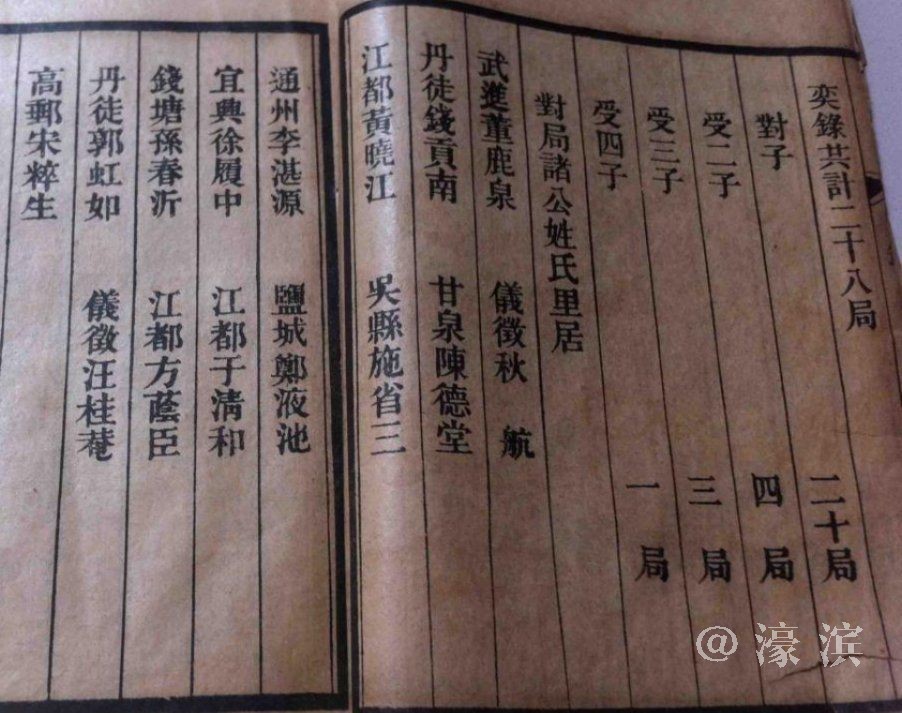 奕錄共計二十八局
對子 二十局
受二子 四局
受三子 三局
受四子 一局
對局諸公姓氏里居
武進董鹿泉 儀徵秋航
丹徒錢貢南 甘泉陳德堂
江都黃曉江 吳縣施省三
通州李湛源 鹽城鄭液池
宜興徐履中 江都于清和
錢塘孫春沂 江都方蔭臣
丹徒郭虹如 儀徵汪桂菴
高郵宋粹生
@濠滨